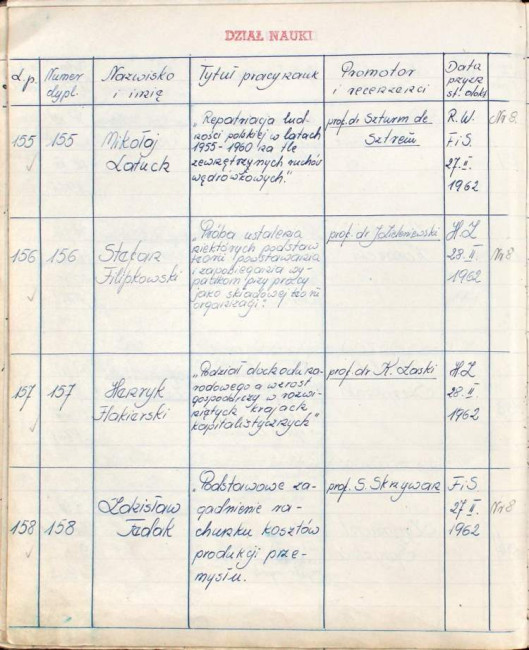 DZIAŁ NAUKI
L.p. Numer dypl. Nazwisko i imię Tytuł pracy nauk Promotor i recenzenci Data przyzn st. dokt
155 155 Mikołaj Latuch
„Repatriacja lud-
ności polskiej w latach
1955-1960 na tle
zewnętrznych ruchów
wędrówkowych."
prof. dr Szturm de
Sztrem
R.W.
F i S.
27.II.
1962
Nr 8
156 156 Stefan Filipkowski
„Próba ustalenia
niektórych podstaw
teorii powstawania
i zapobiegania wy-
padkom przy pracy
jako składowej teorii
organizacji".
prof. dr J. Zieleniewski
H Z
28.II.
1962
Nr 8
157 157 Henryk Flakierski
„Podział dochodu na-
rodowego a wzrost
gospodarczy w rozwi-
niętych krajach
kapitalistycznych"
prof. dr K. Łaski
H Z
28.II.
1962
158 158 Zdzisław Fedak
„Podstawowe za-
gadnienie ra-
chunku kosztów
produkcji prze-
mysłu.
prof. S. Skrzywan
F i S.
27 II.
1962
Nr 8